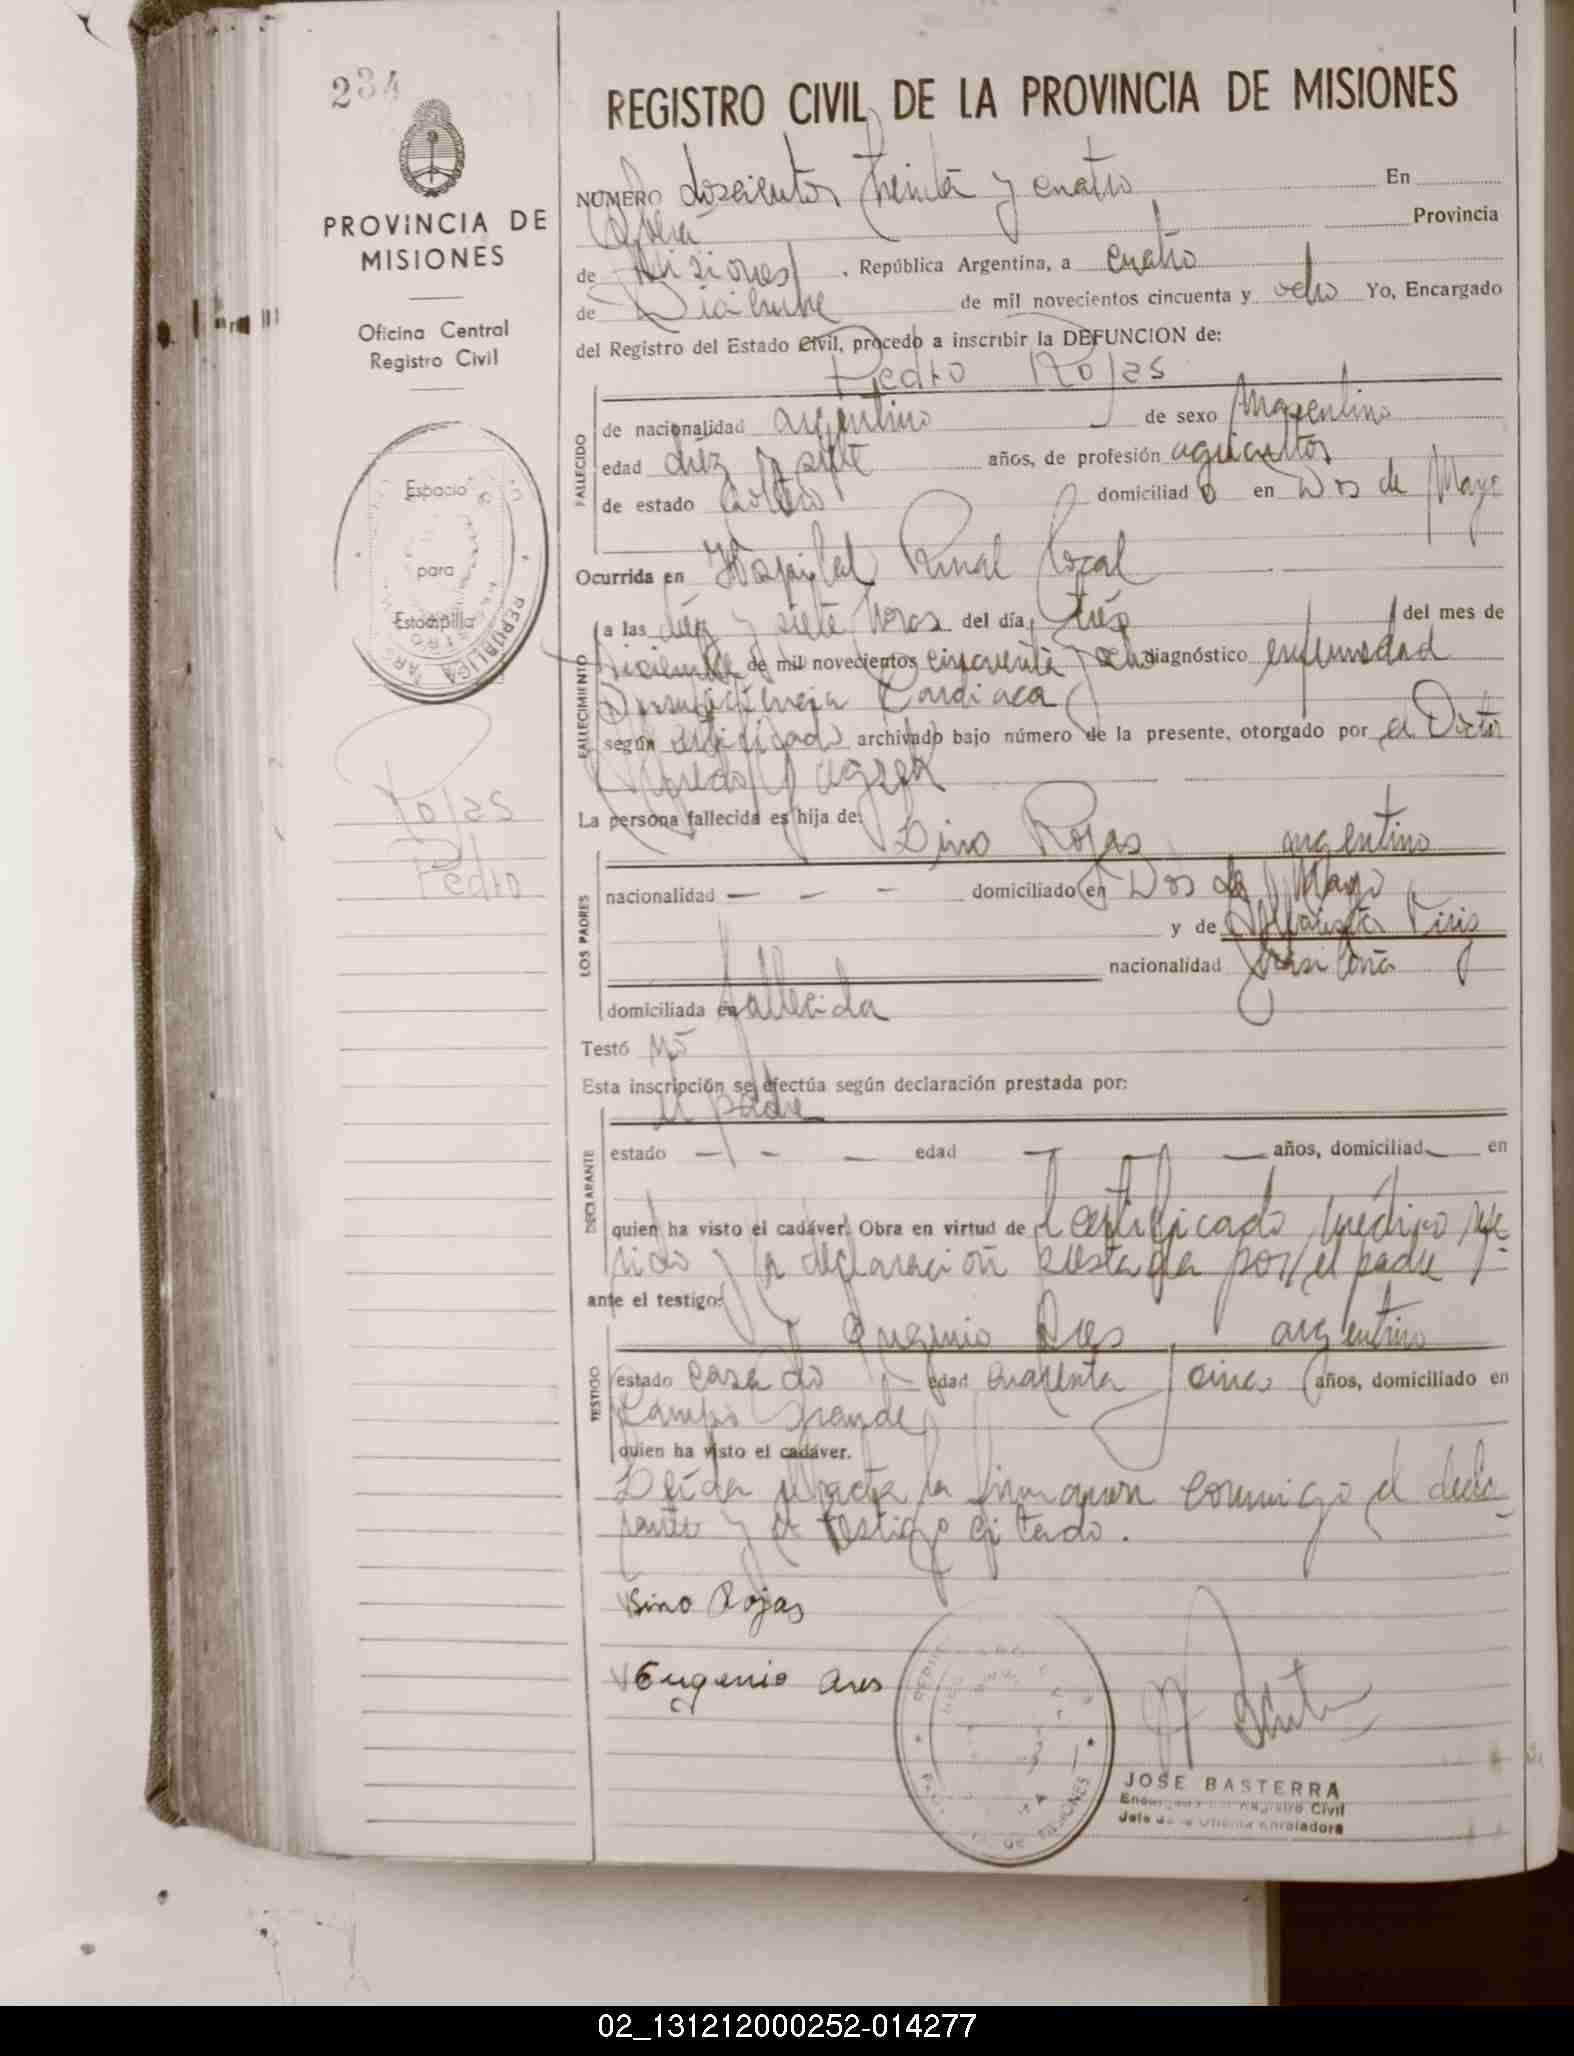 234
PROVINCIA DE
MISIONES
Oficina Central
Registro Civil
Espacio
para
Estampilla
REPUBLICA ARG
Rojas
Pedro
REGISTRO CIVIL DE LA PROVINCIA DE MISIONES
NÚMERO doscientos treinta y cuatro En
Oberá Provincia
de Misiones, República Argentina, a cuatro
de Diciembre de mil novecientos cincuenta y ocho Yo, Encargado
del Registro del Estado Civil, procedo a inscribir la DEFUNCION de:
Pedro Rojas
FALLECIDO
de nacionalidad argentino de sexo Masculino
edad diéz y siete años, de profesión agricultor
de estado soltero domiciliado en Dos de Mayo
Ocurrida en Hospital Rural local
FALLECIMIENTO
a las diéz y siete horas del día tres del mes de
Diciembre de mil novecientos cincuenta y ocho diagnóstico enfermedad
Insuficiencia Cardiaca
según certificado archivado bajo número de la presente, otorgado por el Doctor
Alfredo
La persona fallecida es hija de:
LOS PADRES
Sino Rojas argentino
nacionalidad — — — domiciliado en Dos de Mayo
y de
nacionalidad brasilera
domiciliada en fallecida
Testó no
Esta inscripción se efectúa según declaración prestada por:
DECLARANTE
el padre
estado — — — edad — — — años, domiciliad — en
quien ha visto el cadáver. Obra en virtud del certificado médico refe-
rido y la declaración prestada por el padre
ante el testigo:
TESTIGO
Eugenio Ares argentino
estado casado edad cuarenta y cinco años, domiciliado en
Campo Grande
quien ha visto el cadáver.
Leída el acta la firmaron conmigo el decla-
rante y el testigo citado.
Sino Rojas
Eugenio Ares
DE MISIONES
JOSE BASTERRA
Encargado del Registro Civil
Jefe de la Oficina Enroladora
02_131212000252-014277